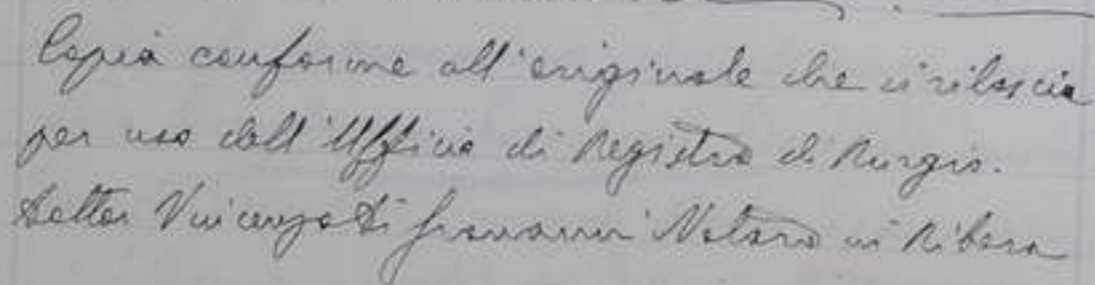 Copia conforme all'originale che si rilascia
per uso dell'Ufficio di Registro di Burgio.
Dottor Vincenzo Di Giovanni Notaro in Ribera